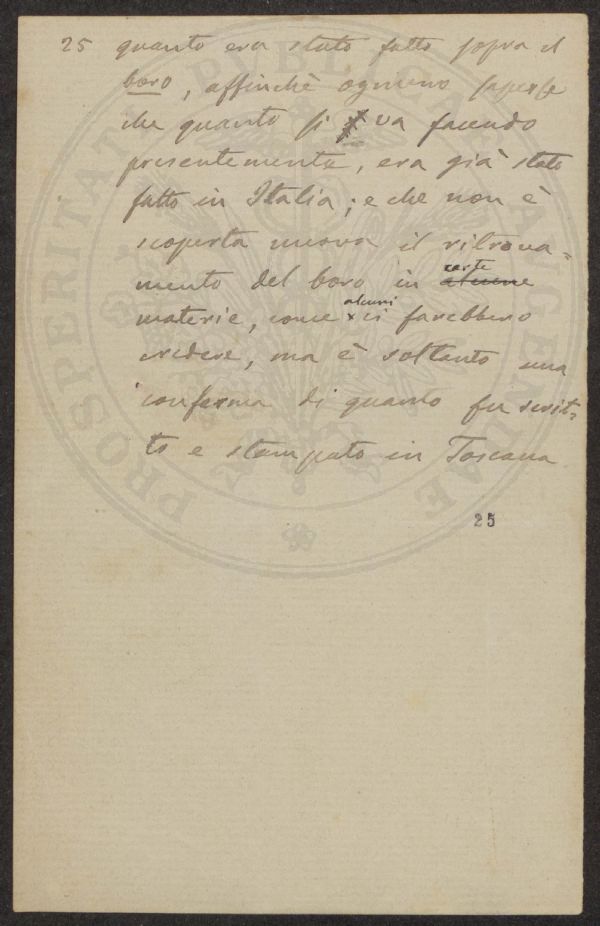 25 quanto era stato fatto sopra il
boro, affinchè ognuno sapesse
che quanto si va facendo
presentemente, era già stato
fatto in Italia; e che non è
scoperta nuova il ritrova=
mento del boro in alcune certe
materie, come alcuni ci farebbero
credere, ma è soltanto una
conferma di quanto fu scrit=
to e stampato in Toscana
25
PROSPERITATI PVBLICAE AVGENDAE